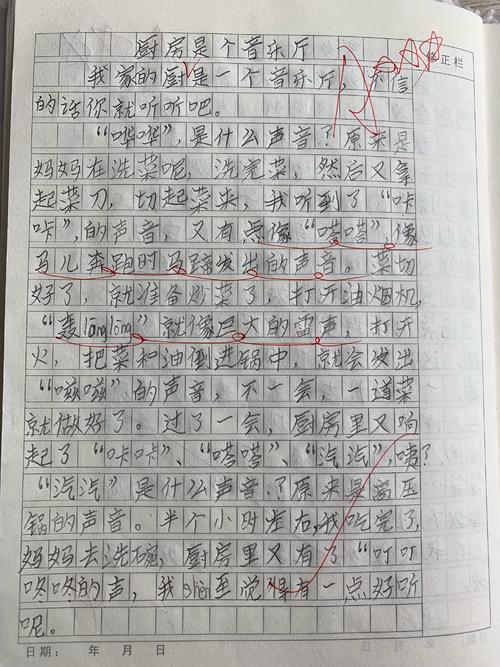 厨房是个音乐厅
修正栏
我家的厨是一个音乐厅，不信
的话你就听听吧。
“哗哗”，是什么声音？原来是
妈妈在洗菜呢，洗完菜，然后又拿
起菜刀，切起菜来，我听到了“咔
咔”，的声音，又有点像“嗒嗒”，像
马儿奔跑时马蹄发出的声音。菜切
好了，就准备炒菜了，打开油烟机，
“轰lōnglōng”就像巨大的雷声，打开
火，把菜和油倒进锅中，就会发出
“嗞嗞”，的声音，不一会，一道菜
就做好了。过了一会，厨房里又响
起了“咔咔”、“嗒嗒”、“汽汽”，咦？
“汽汽”是什么声音？原来是高压
锅的声音。半个小时左右，我吃完了，
妈妈去洗碗，厨房里又有了“叮叮
咚咚的声，我shèn至觉得有一点好听
呢。
日期： 年 月 日